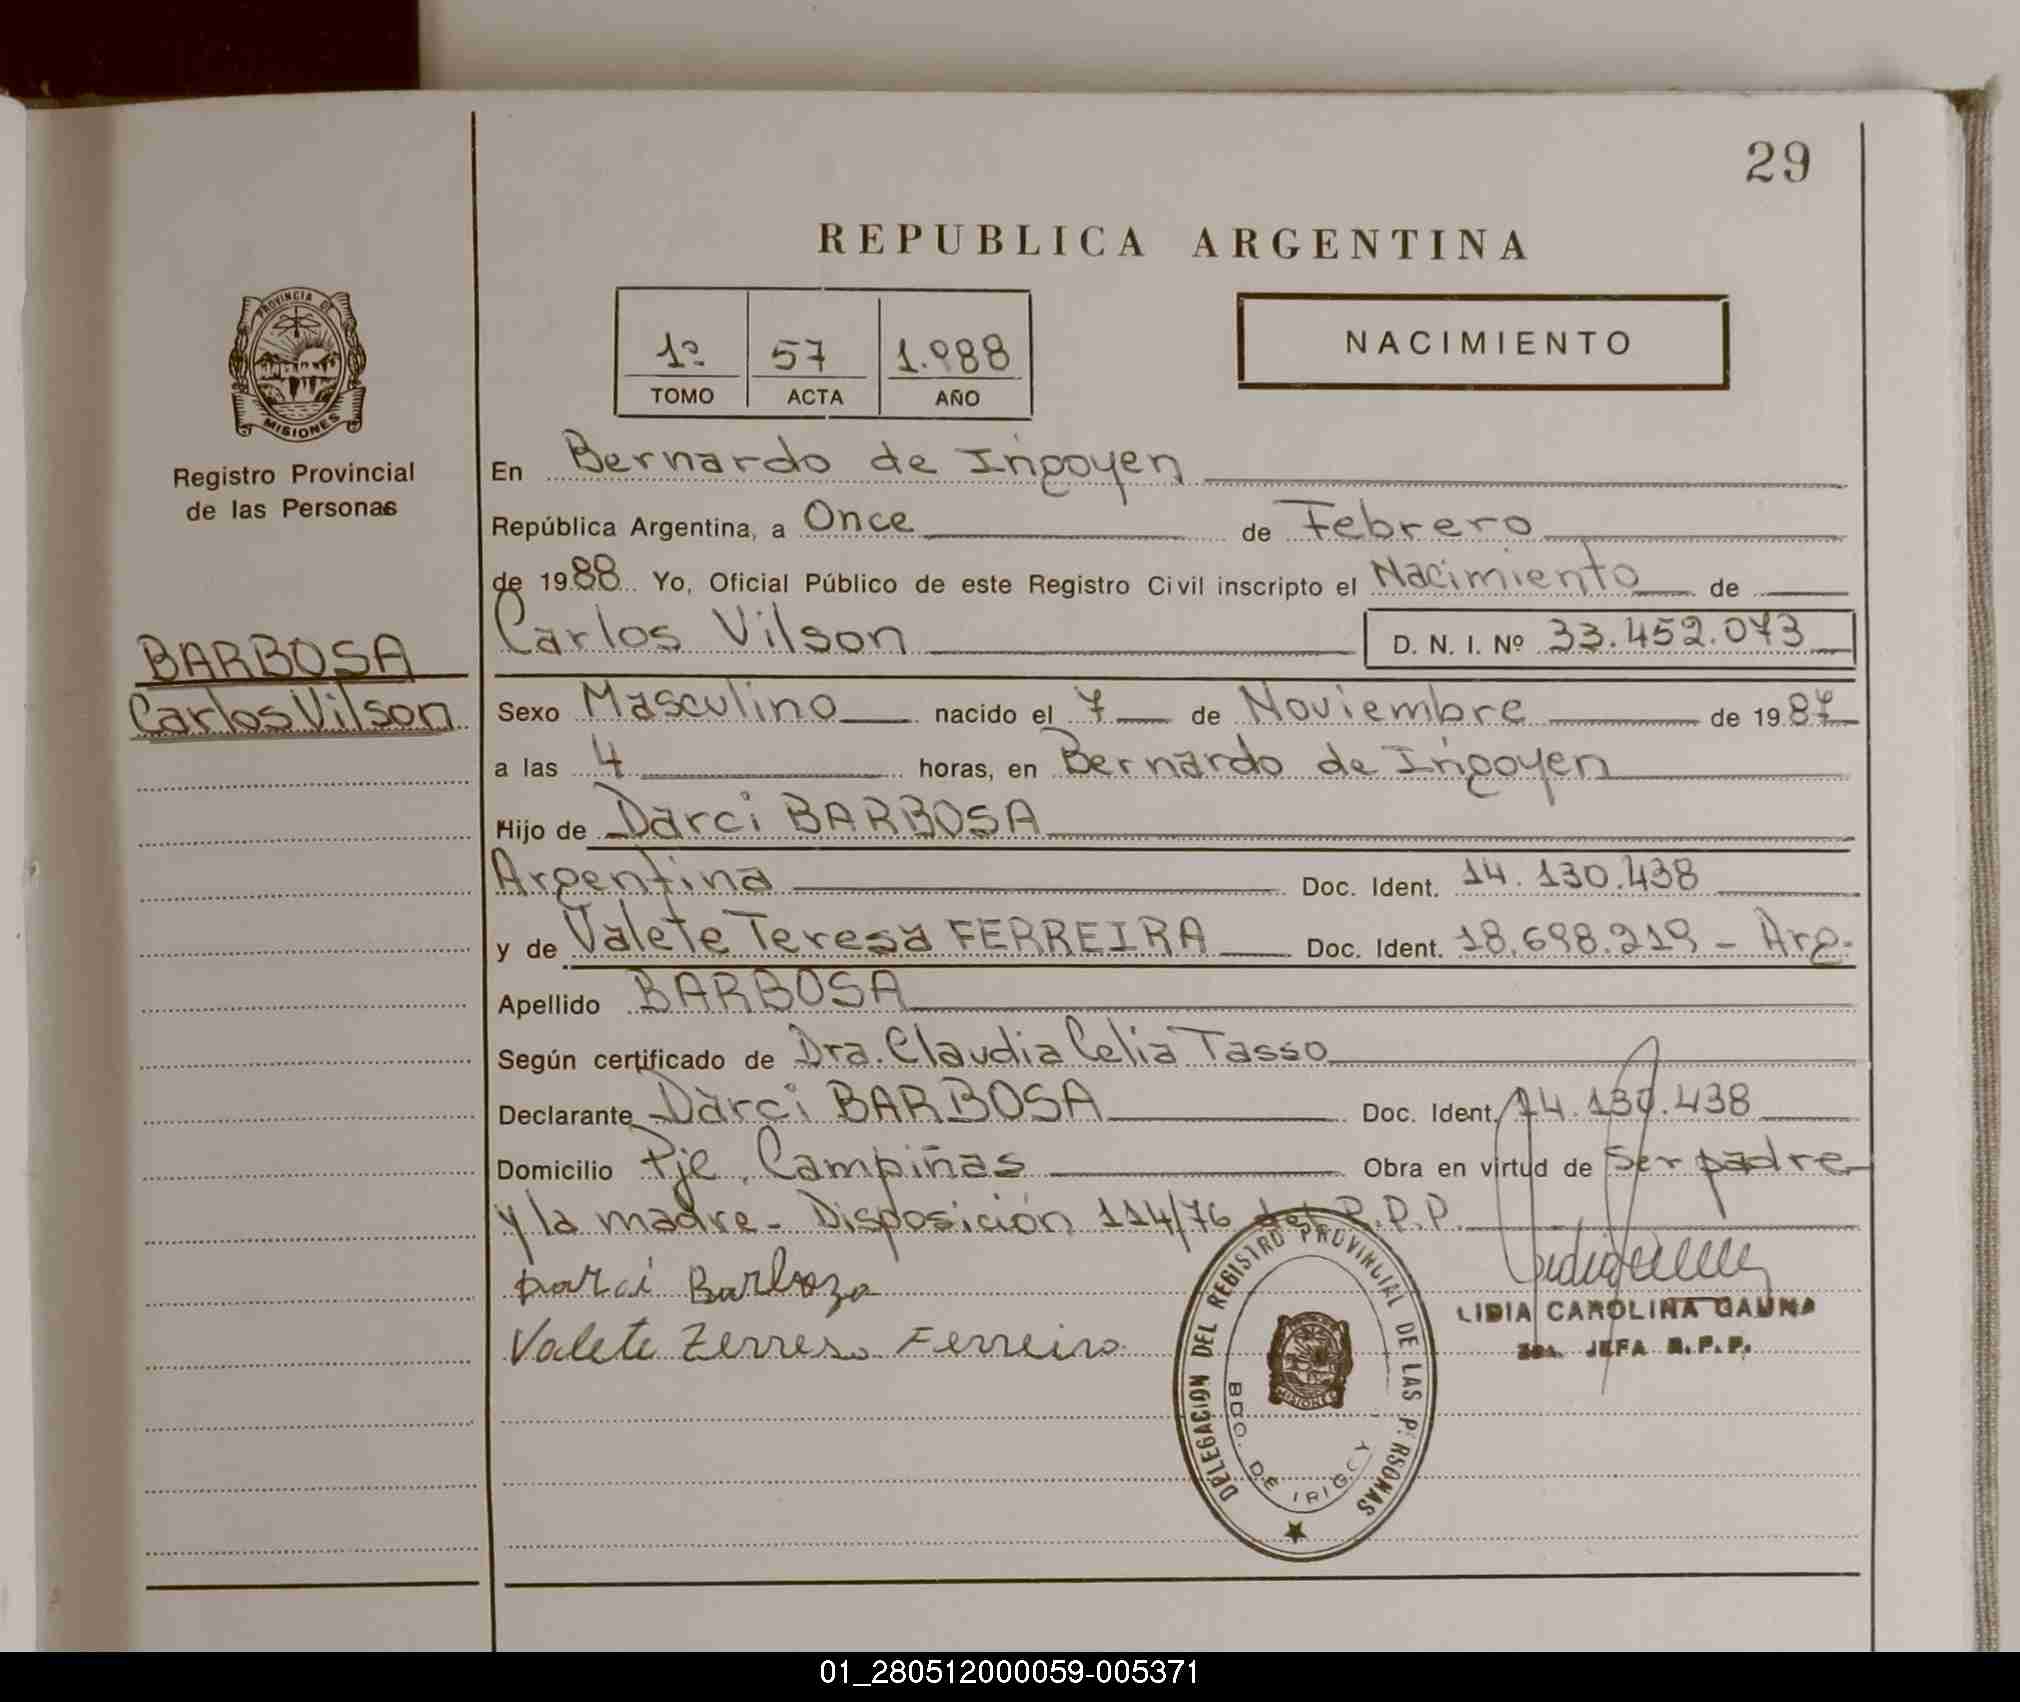 29
REPUBLICA ARGENTINA
PROVINCIA DE
MISIONES
Registro Provincial
de las Personas
BARBOSA
Carlos Vilson
1º 57 1.988
TOMO ACTA AÑO
NACIMIENTO
En Bernardo de Irigoyen
República Argentina, a Once de Febrero
de 1988 Yo, Oficial Público de este Registro Civil inscripto el Nacimiento de
Carlos Vilson D. N. I. Nº 33.452.073
Sexo Masculino nacido el 7 de Noviembre de 1987
a las 4 horas, en Bernardo de Irigoyen
Hijo de Darci BARBOSA
Argentina Doc. Ident. 14.130.438
y de Valete Teresa FERREIRA Doc. Ident. 18.698.219 - Arg.
Apellido BARBOSA
Según certificado de Dra. Claudia Celia Tasso
Declarante Darci BARBOSA Doc. Ident. 14.130.438
Domicilio Pje. Campiñas Obra en virtud de Ser padre
y la madre - Disposición 114/76 del R.P.P.
Darci Barboza
Valete Zerresa Ferreira
LIDIA CAROLINA GAUNA
JEFA R.P.P.
DELEGACION DEL REGISTRO PROVINCIAL DE LAS PERSONAS
BDO. DE IRIGOY
MISIONES
01_280512000059-005371